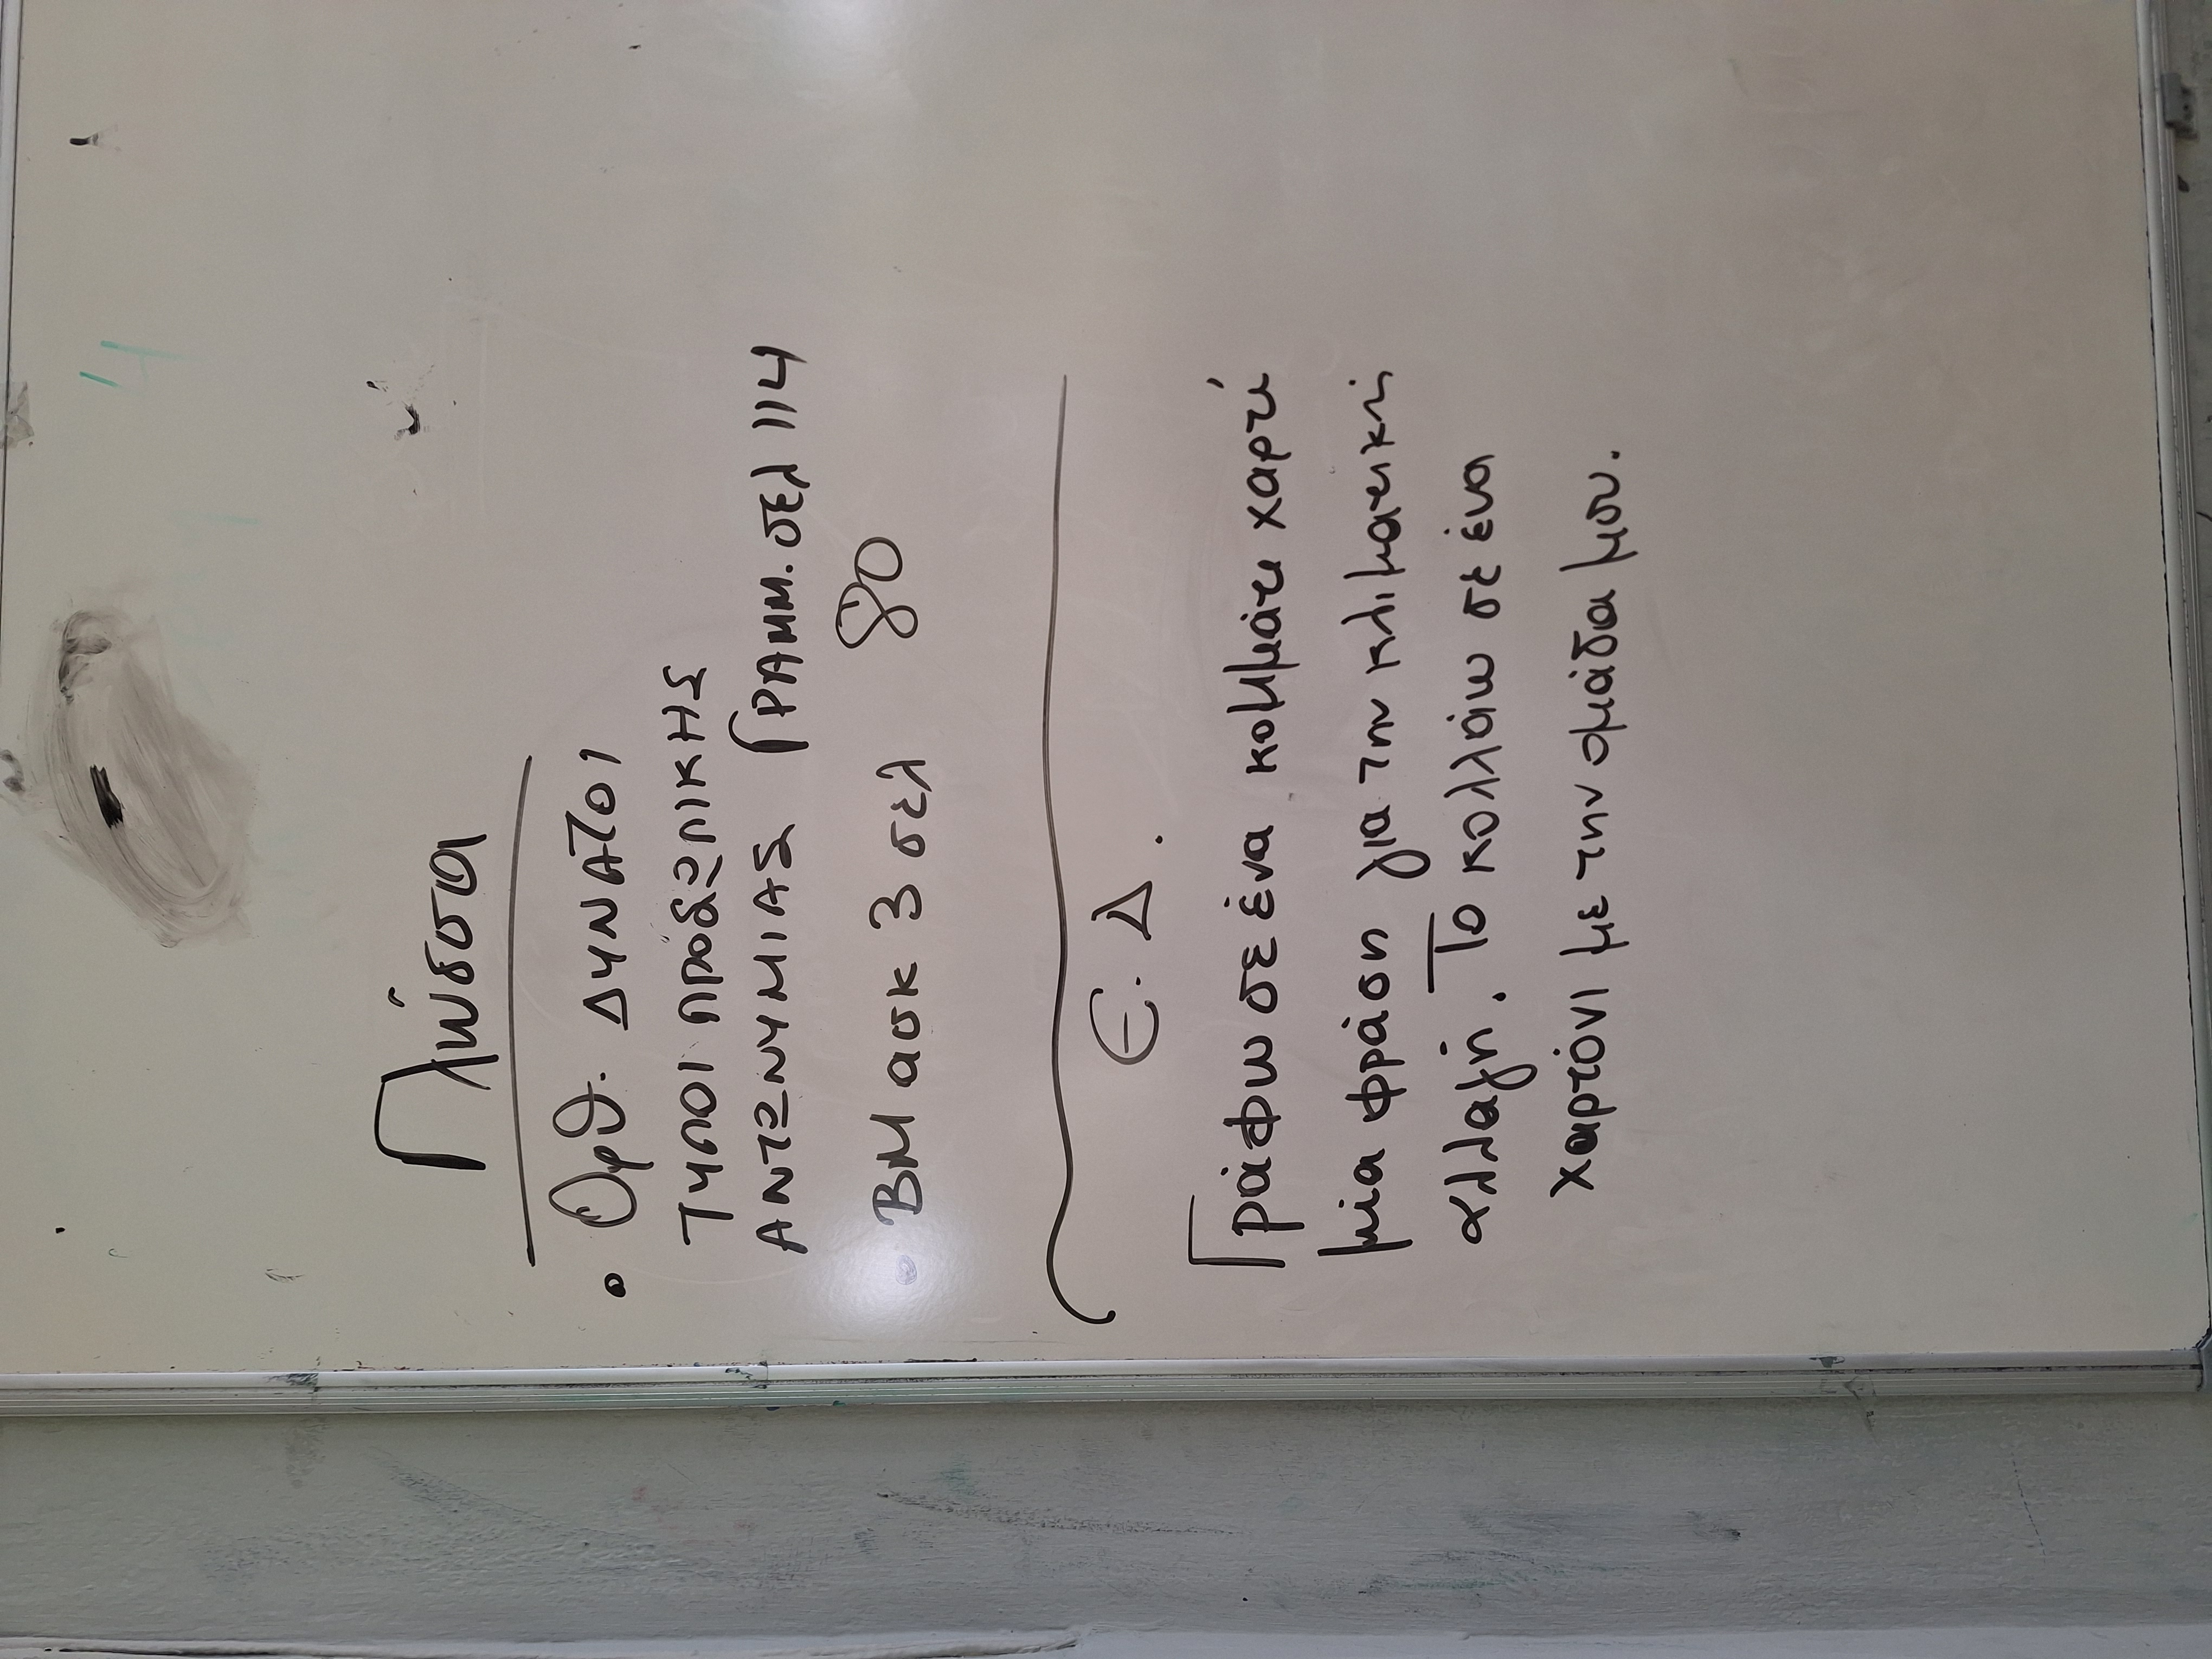 Γλώσσα
• Ορθ. ΔΥΝΑΤΟΙ
ΤΥΠΟΙ ΠΡΟΣΩΠΙΚΗΣ
ΑΝΤΩΝΥΜΙΑΣ ΓΡΑΜΜ. σελ 114
• ΒΜ ασκ 3 σελ 80
Ε. Δ.
Γράφω σε ένα κομμάτι χαρτί
μία φράση για την κλιματική
αλλαγή. Το κολλάω σε ένα
χαρτόνι με την ομάδα μου.